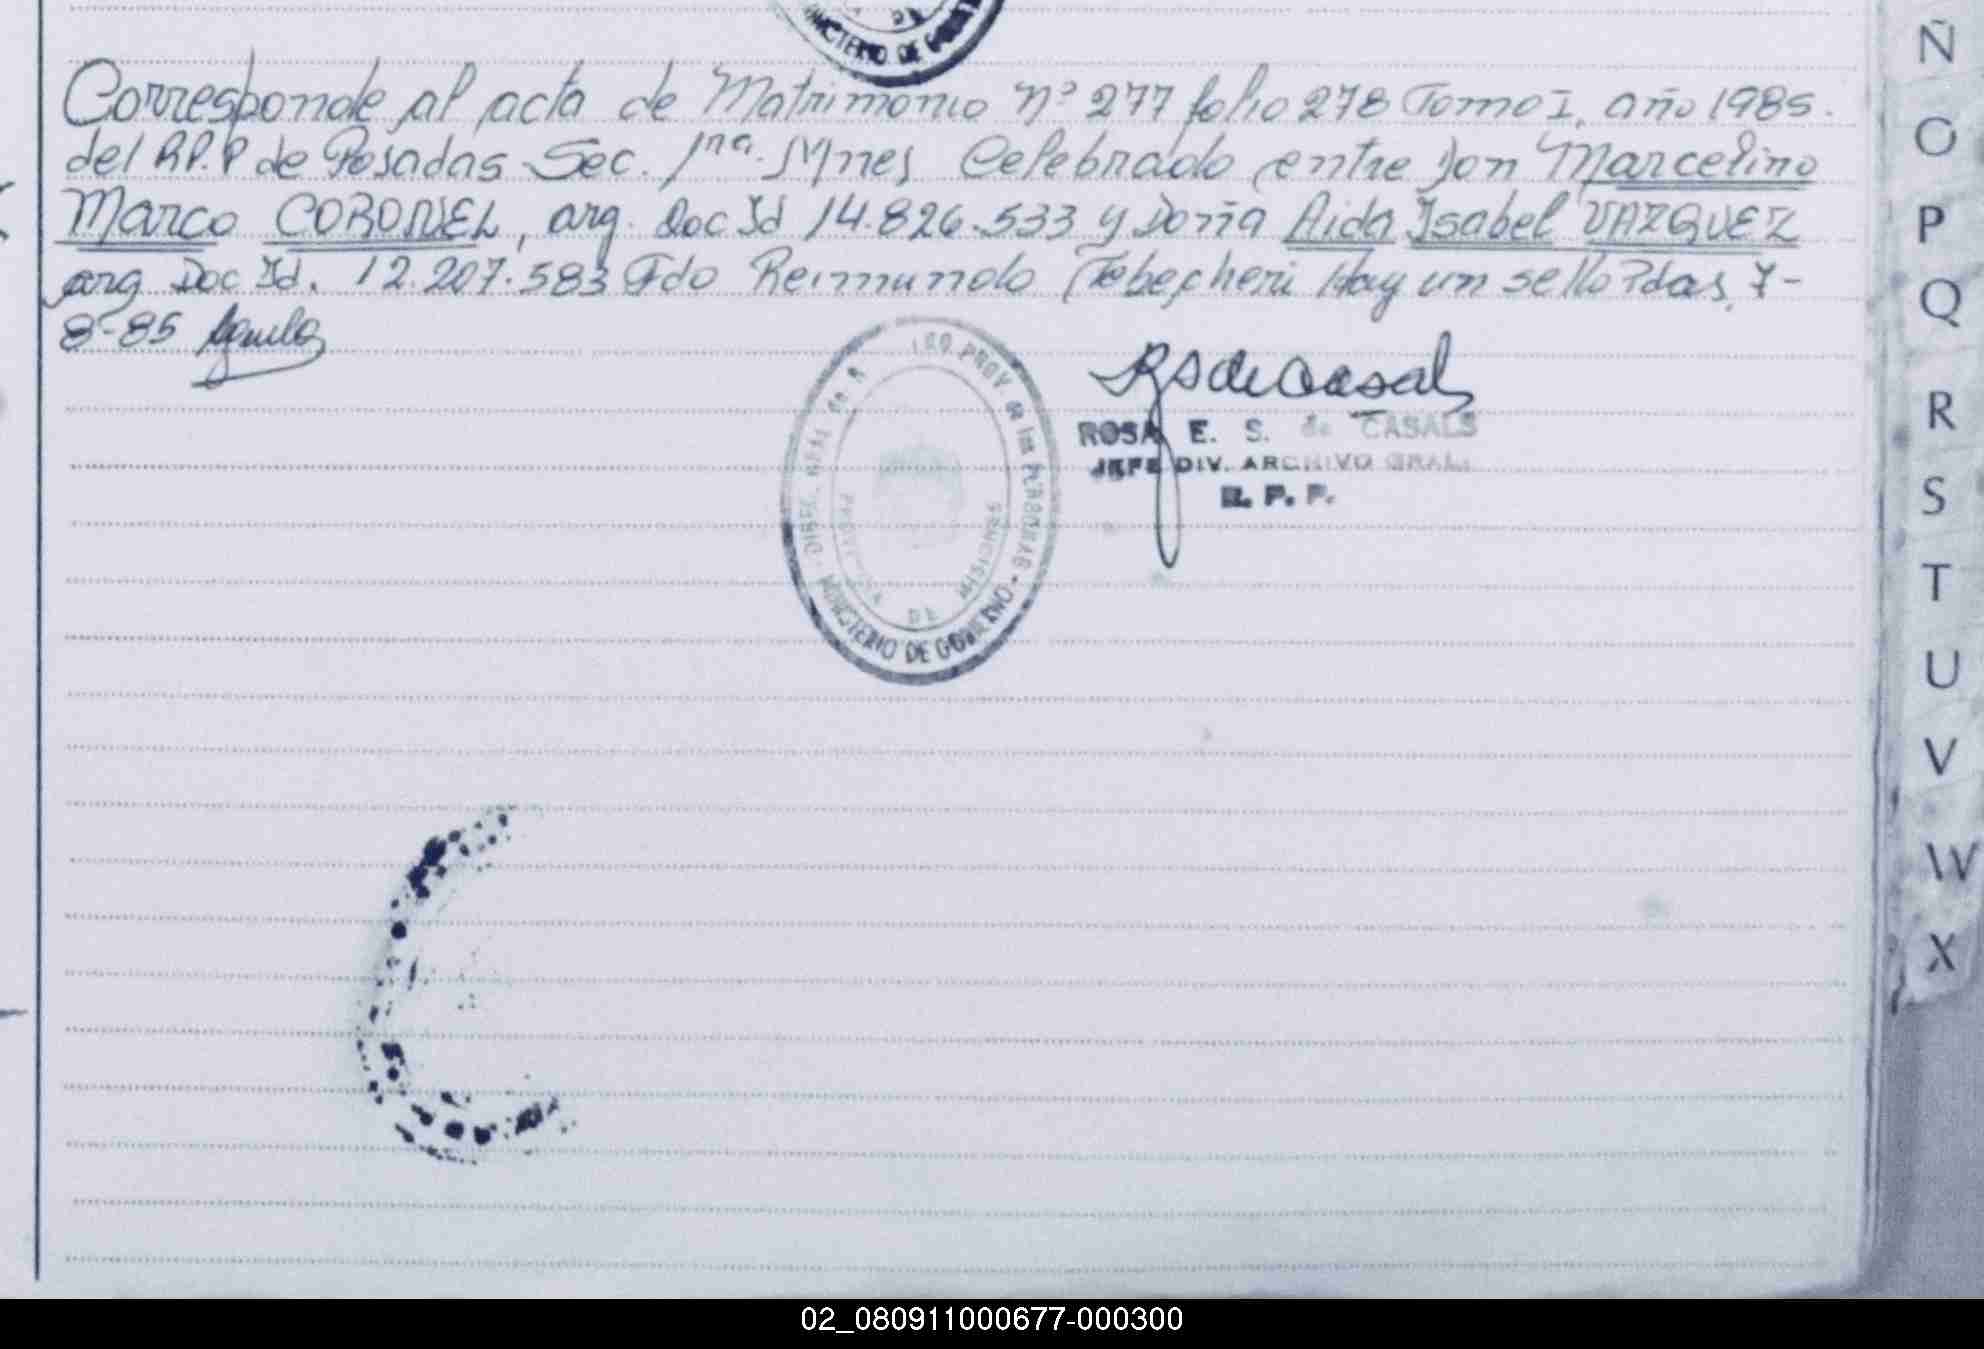 MINISTERIO DE
Corresponde al acta de Matrimonio nº 277 folio 278 Tomo I, año 1985.
del R.P.P de Posadas Sec. 1ra. Mnes Celebrado entre Don Marcelino
Marco CORONEL, arg. Doc Id 14.826.533 y Doña Aida Isabel VAZQUEZ
arg Doc Id. 12.207.583 Fdo Reimundo Hay un sello Pdas, 7-
8-85
DIREC. GRAL de R PROV. de las PERSONAS
PROVINCIA DE MISIONES
MINISTERIO DE GOBIERNO
RS de Casals
ROSA E. S. de CASALS
JEFE DIV. ARCHIVO GRAL.
R. P. P.
Ñ
O
P
Q
R
S
T
U
V
W
X
02_080911000677-000300